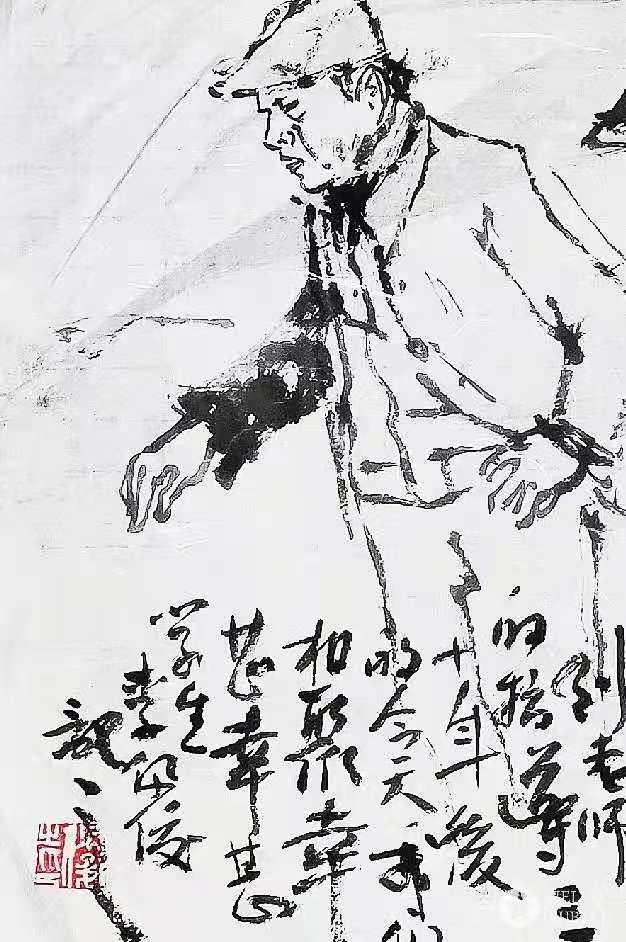 到老师
的指导三
十年後
的今天我们
相聚幸
甚幸甚
学生李俊
记